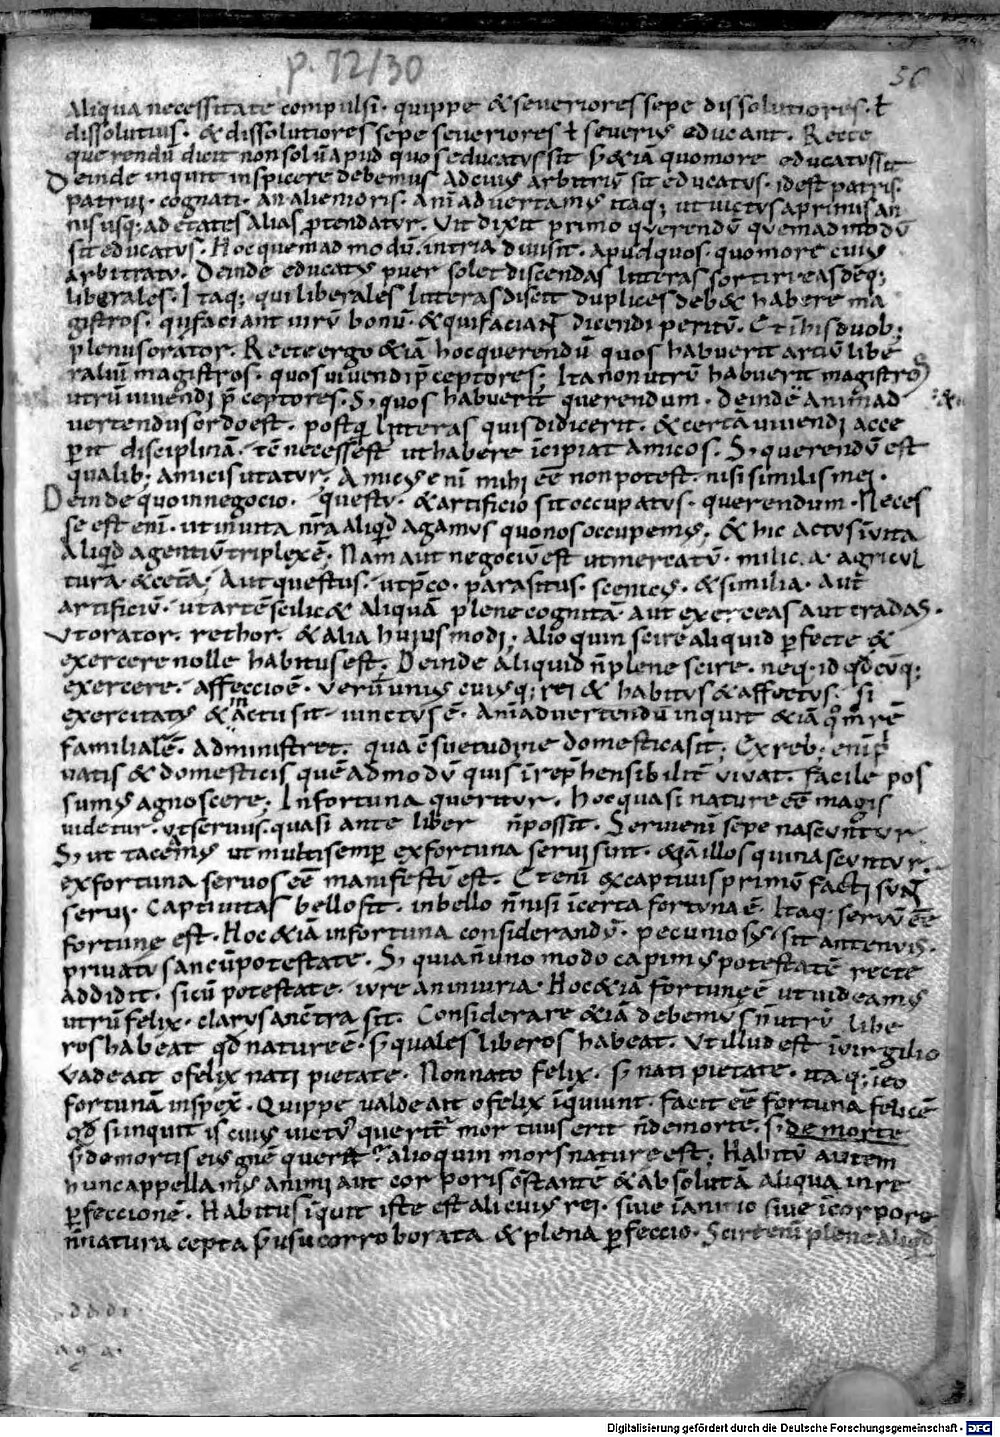 p. 72/30
56
Aliqua necessitate compulsi· quippe & severiores sepe dissolutiores· ł
dissolutius· & dissolutiores sepe severiores ł severi⁹ educant. Recte
querendū dicit non solū apud quos educatus sit s; &iā quo more educatus sit
Deinde inquit inspicere debemus ad cui⁹ arbitriū sit educatus· idest patris·
patrui· cognati· an alie moris· Animadvertam⁹ itaq; ut victus a primis an
nis usq; ad etates alias p̄tendatur. Vit dixit primo querendū quemadmodū
sit educatus. Hoc quemadmodū· in tria divisit· apud quos· quo more cui⁹
arbitratu· Deinde educat⁹ puer solet discendas litteras sortiri easdēq;
liberales· Itaq; qui liberales litteras discit duplices deb& habere ma
gistros· q̇ faciant virū bonū· & qui faciant dicendi peritū· Et ī his duob;
plenus orator. Recte ergo &iā hoc querendū quos habuerit artiū libe
raliū magistros· quos vivendi p̄ceptores; Ita non utrū habuerit magistros
utrū vivendi p̄ceptores· S; quos habuerit querendum· Deinde animad
vertendus ordo est· postq̄ litteras quis didicerit· & certā vivendi acce
perit disciplinā· tē necesse est ut habere īcipiat amicos· S; querendū est
qualib; amicis utatur; Amic⁹ enī mihi eē non potest· nisi similis mei·
Deinde quo in negocio· questu· & artificio sit occupatus· querendum· Neces
se est enī· ut in vita nr̄a aliqd agamus quo nos occupem⁹. & hic actus ī vita
aliqd agentiū triplex ē· Nam aut negociū est ut mercatū· milic.a· agricul
tura· & cet̄a; Aut questus· ut p̄co· parasitus· scenic⁹· & similia· aut
artificiū· ut artē scilic& aliquā plene cognitā· aut exerceas aut tradas·
Vt orator· rethor· & alia hujusmodi; Alioquin scire aliquid p̄fecte &
exercere nolle habitus est; Deinde aliquid n̄ plene scire· neq; id qd cūq;
exercere· affeccio ē· Verū unius cuiusq; rei & habitus & affectus· si
exercitat⁹ & in actu sit· iunctus ē· Animadvertendū inquit &iā qm̊ rē
familiarē· administret· qua ɔ̄suetudine domestica sit; Ex reb· enī p̄
vatis & domesticis quē ad modū quis īrep̄hensibilit̄ vivat· facile pos
sum⁹ agnoscere; In fortuna queritur· hoc quasi nature eē magis
videtur· ut servus· quasi ante liber n̄ possit· Servi enī sepe nascuntur
S; ut taceam⁹ ut multi semp̄ ex fortuna servi sint· &iā illos qui nascuntur·
ex fortuna servos eē manifestū est· Et enī & captivis primū facti sunt
servi· Captivitas bello fit· in bello n̄ nisi īcerta fortuna ē· Itaq· servū eē
fortune est· Hoc &iā in fortuna considerandū· pecunios⁹· sit an tenuis·
privatus an cū potestate· S; quia n̄ uno modo capim⁹ potestatē recte
addidit· si cū potestate· iure an iniuria· Hoc &iā fortunę ē ut videam⁹
utrū felix· clarus an c̄tra sit· Considerare &iā debem⁹ n̄ utrū libe
ros habeat qd nature ē· s; quales liberos habeat· Ut illud est ī virgilio
vade ait o felix nati pietate· Non nato felix· s; nati pietate· itaq; ī eo
fortunā inspex̄· Quippe valde ait o felix īquiunt· facit eē fortuna felicē
qd sunquit is cui⁹ victu querit̄ mortuus erit n̄ de morte· s; de morte
s; de mortis ei⁹ gn̄e querit̄· alioquin mors nature est; Habitū autem
hunc appellam⁹ animi aut corporis ɔ̄stantē & absolutā aliqua in re
p̄feccionē· Habitus īquit iste est alicui⁹ rei· sive ī animo sive ī corpore
n̄ natura cepta s; usu corroborata & plena p̄feccio· Scire enī plene aliqd
Digitalisierung gefördert durch die Deutsche Forschungsgemeinschaft - DFG